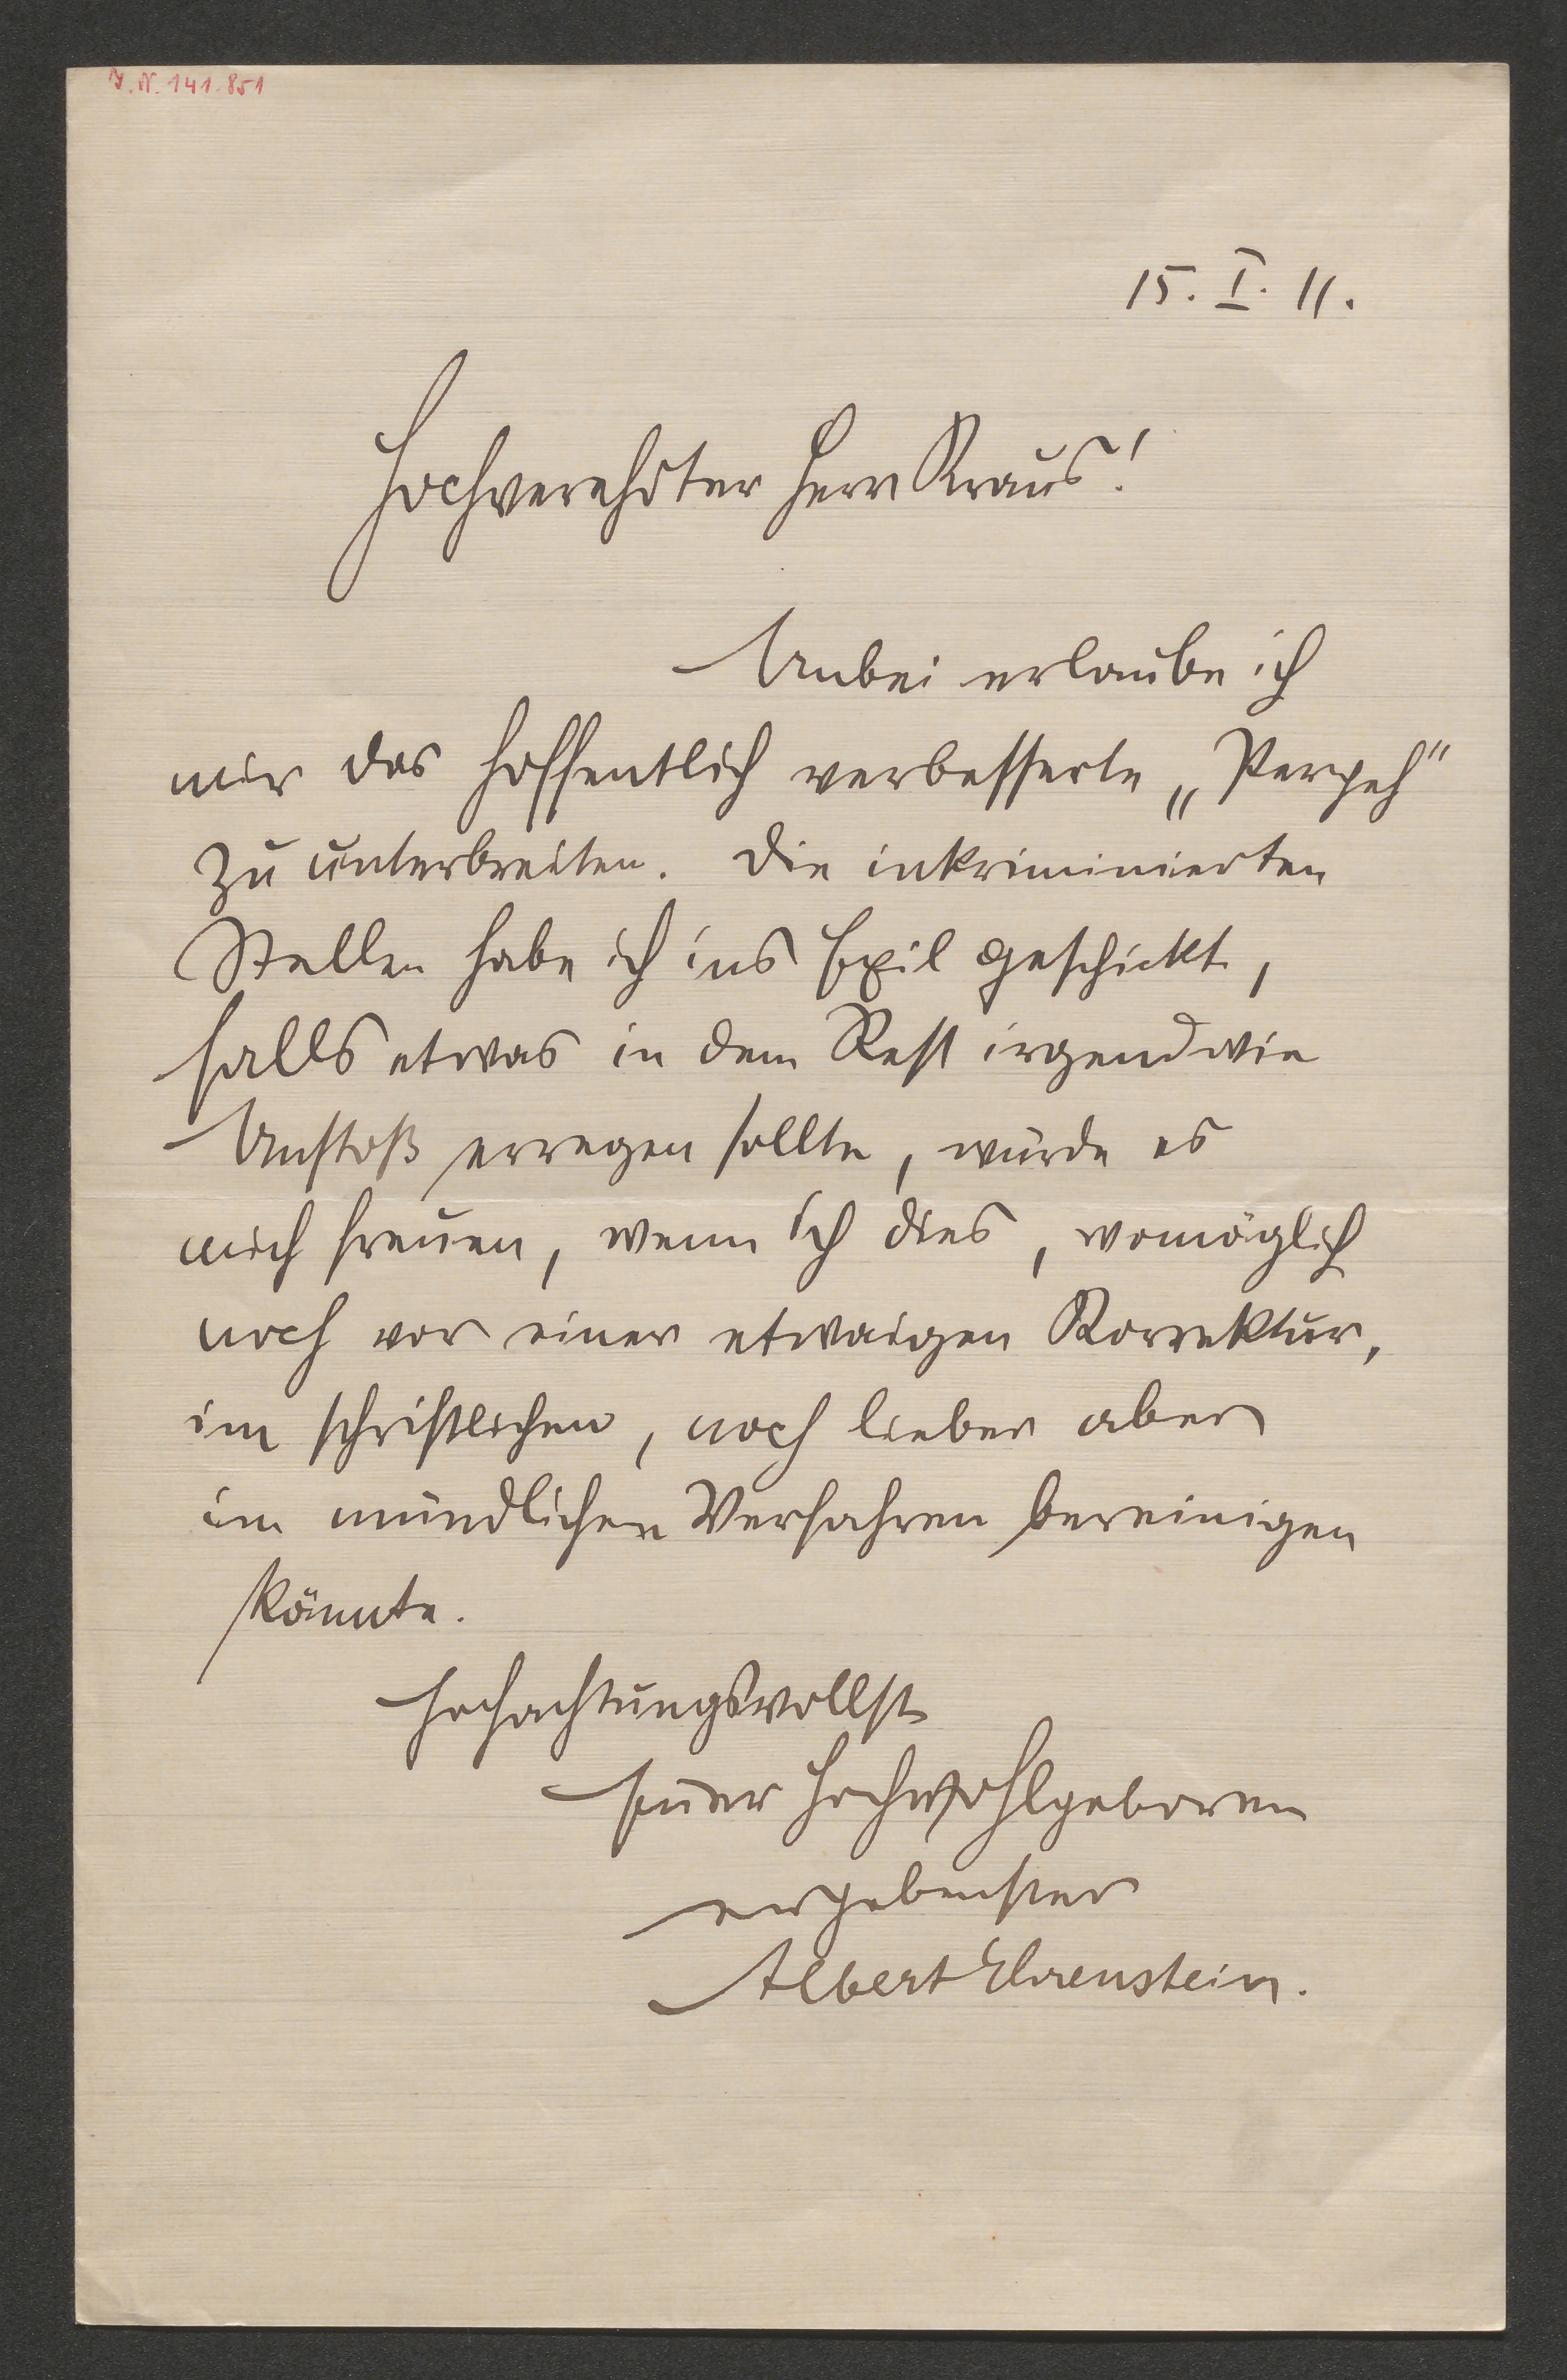 I. N. 141.851
15. I. 11.
Hochverehrter Herr Kraus!
Anbei erlaube ich
mir das hoffentlich verbesserte „Parzeh"
zu unterbreiten. Die inkriminierten
Stellen habe ich ins Exil geschickt,
falls etwas in dem Rest irgendwie
Anstoß erregen sollte, würde es
mich freuen, wenn ich dies, womöglich
noch vor einer etwaigen Korrektur,
im schriftlichen, noch lieber aber
im mündlichen Verfahren bereinigen
könnte.
Hochachtungsvollst
Euer Hochwohlgeboren
ergebenster
Albert Ehrenstein.